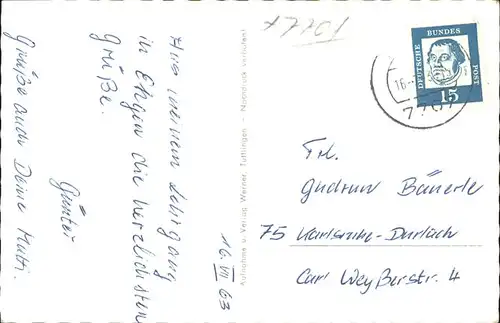 x7701
Aus meinem Lehrgang
in Engen die herzlichsten
Grüße.
Günter
Grüße auch Deine Mutti.
16. VII 63
Aufnahme u. Verlag Werner, Tuttlingen - Nachdruck verboten!
DEUTSCHE BUNDESPOST
15
16.
Frl.
Gudrun Bäuerle
75 Karlsruhe-Durlach
Carl Weyßerstr. 4